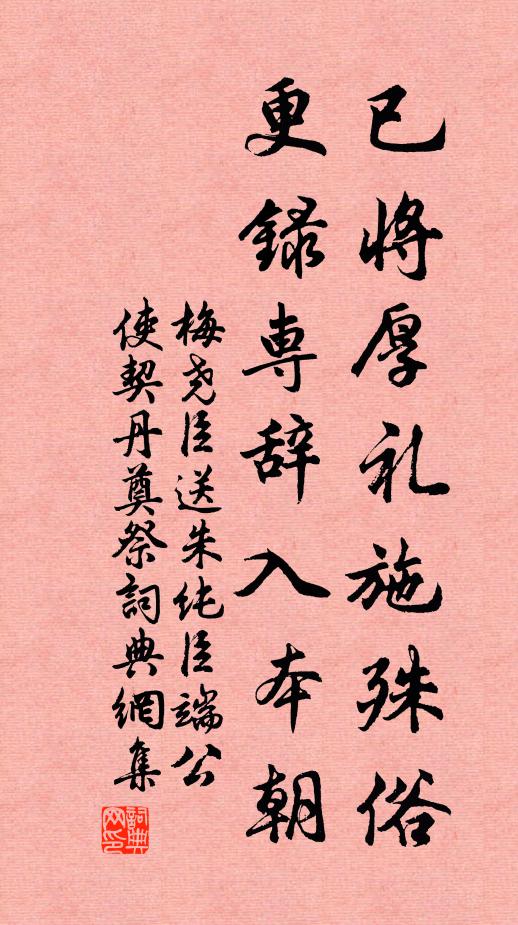 已将厚礼施殊俗
更録専辞入本朝
梅尧臣送朱纯臣端公
使契丹奠祭詞典網集
詞典网印